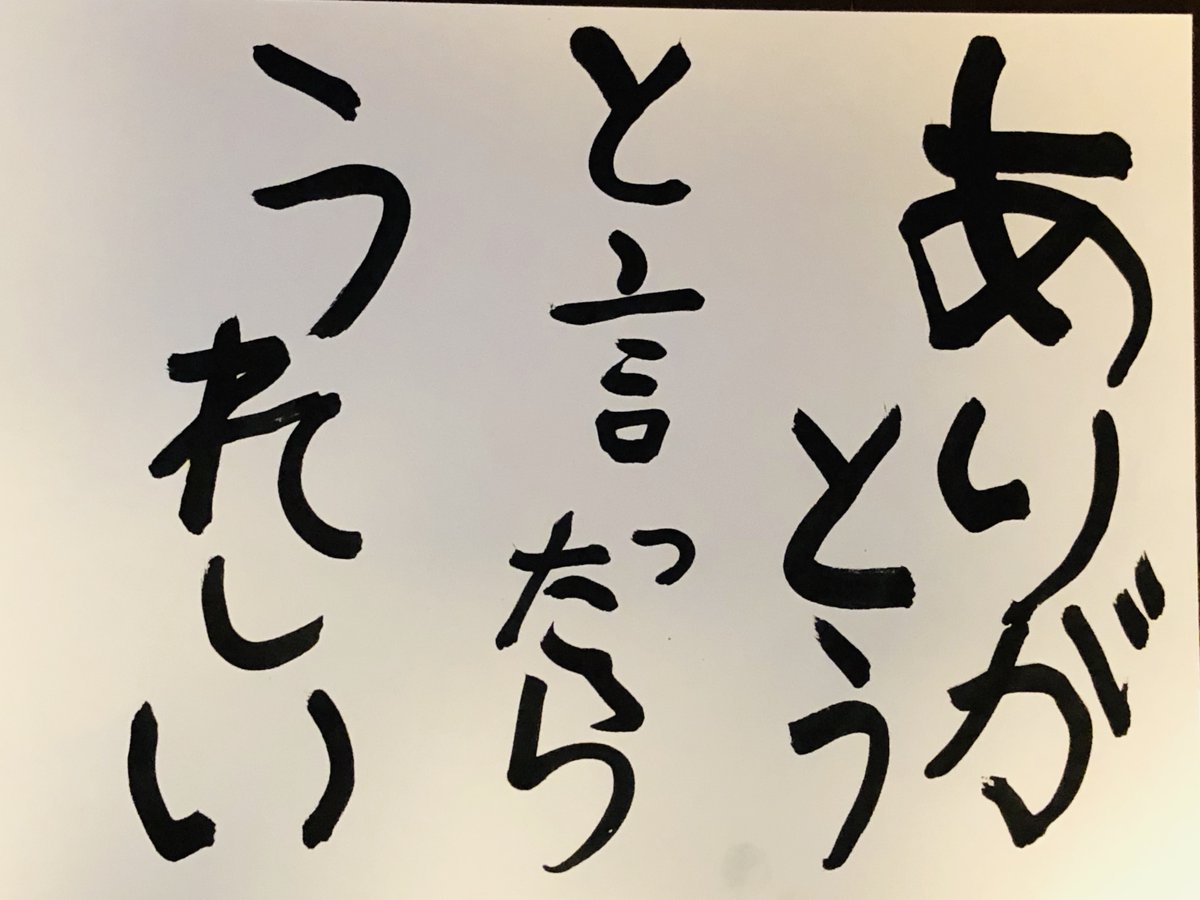 ありが
とう
と言ったら
うれしい